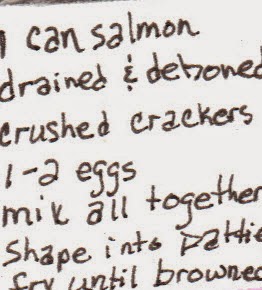 1 can salmon
drained & deboned
crushed crackers
1-2 eggs
mix all together
Shape into pattie
fry until browned